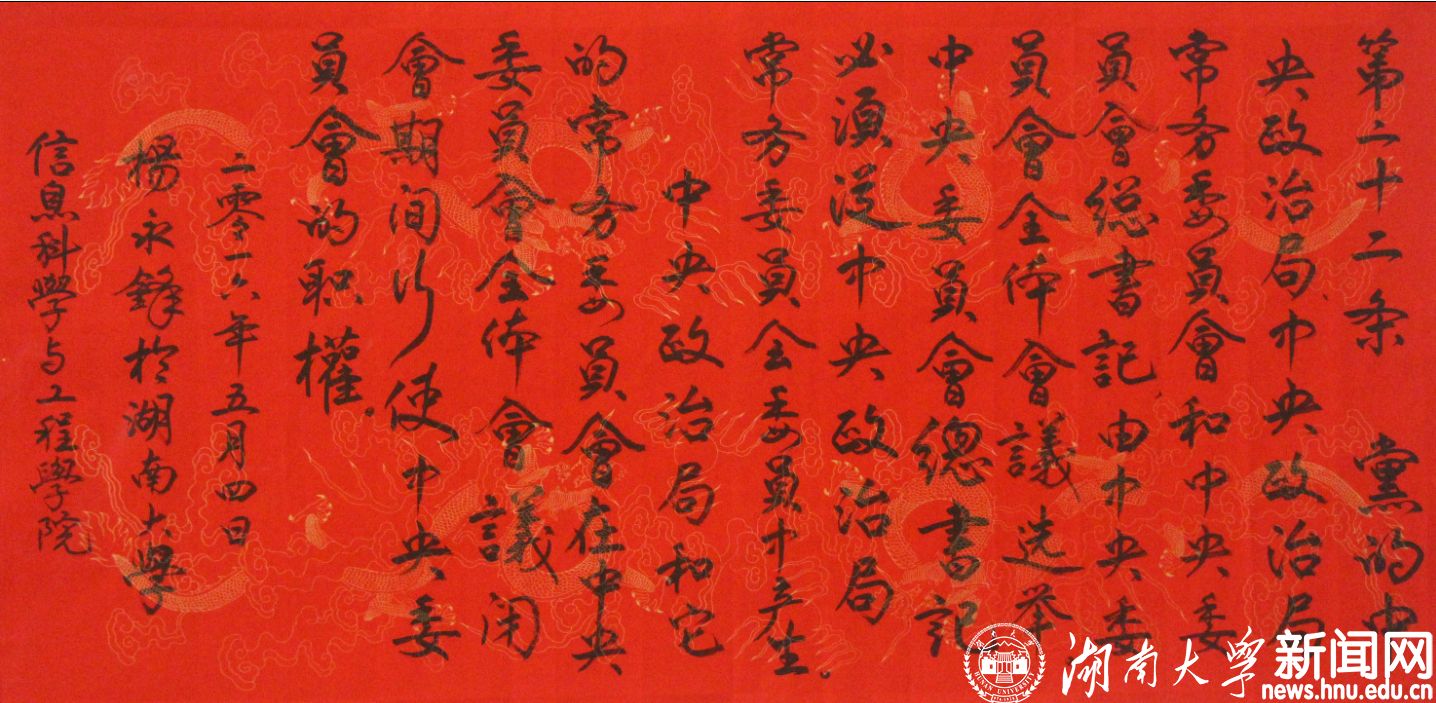 第二十二条 黨的中
央政治局、中央政治局
常务委員會和中央委
員會總書記,由中央委
員會全体會議选举
中央委員會總書記
必須從中央政治局
常务委員会委員中产生。
中央政治局和它
的常务委員會在中央
委員會全体會議闭
會期间行使中央委
員會的职權。
二零一六年五月四日
楊永鋒於湖南大學
信息科學与工程學院
湖南大学
HUNAN UNIVERSITY
湖南大学
新闻网
news.hnu.edu.cn